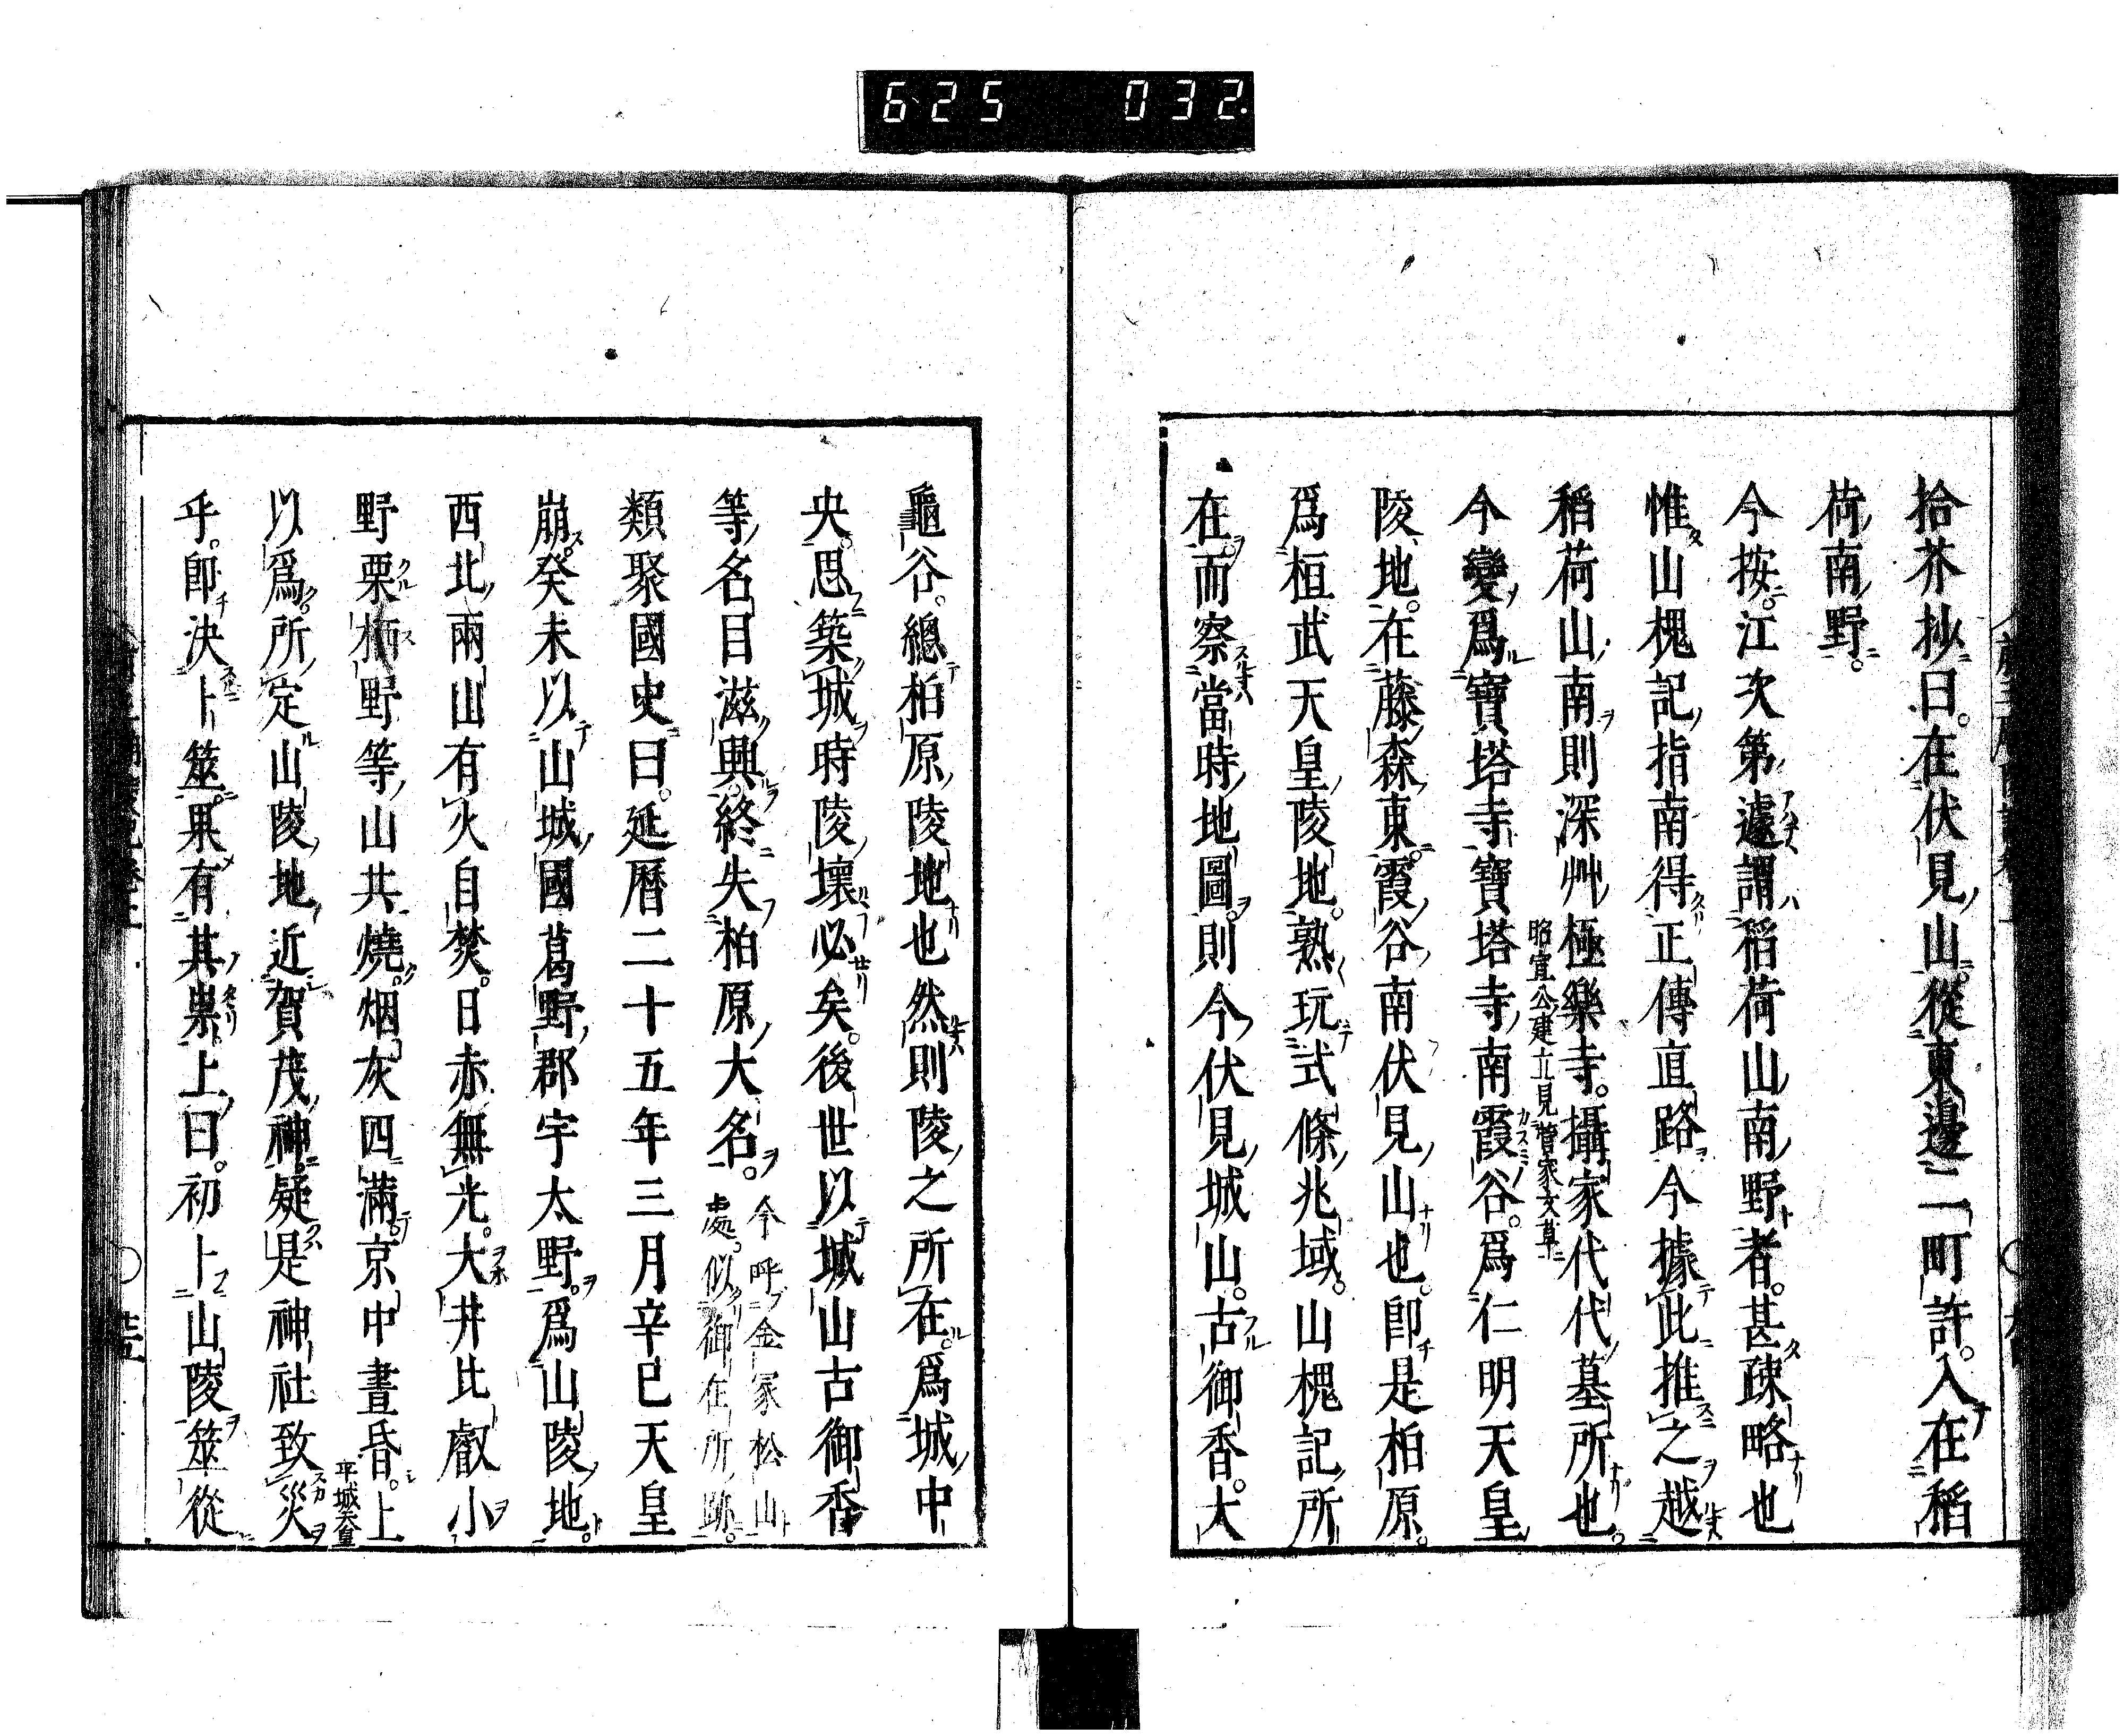 625 032
拾芥抄曰。在伏見山。從東邊二町許。入在稻
荷南野。
今按。江次第遽謂稻荷山南野者。甚疎略也
惟山槐記指南得正傳直路今據此推之越
稻荷山南則深艸極樂寺。攝家代代墓所也。
昭宣公建立見菅家文草
今變爲寶塔寺寶塔寺南霞谷。爲仁明天皇
陵地。在藤森東。霞谷南伏見山也。卽是柏原。
爲桓武天皇陵地。熟玩式條兆域。山槐記所
在。而察當時地圖。則今伏見城山。古御香。大
龜谷。總柏原陵地也然則陵之所在爲城中
央。思築城時陵壞必矣。後世以城山古御香
等名目滋興。終失柏原大名。
今呼金冢松山
處。似御在所跡。
類聚國史曰。延曆二十五年三月辛巳天皇
崩。癸未以山城國葛野郡宇太野。爲山陵地。
西北兩山有火自焚。日赤無光。大井比叡小
野栗栖野等山共燒。烟灰四滿。京中晝昏。上
平城天皇
以爲。所定山陵地近賀茂神。疑是神社致災
乎。卽決卜筮。果有其祟。上曰。初卜山陵筮從